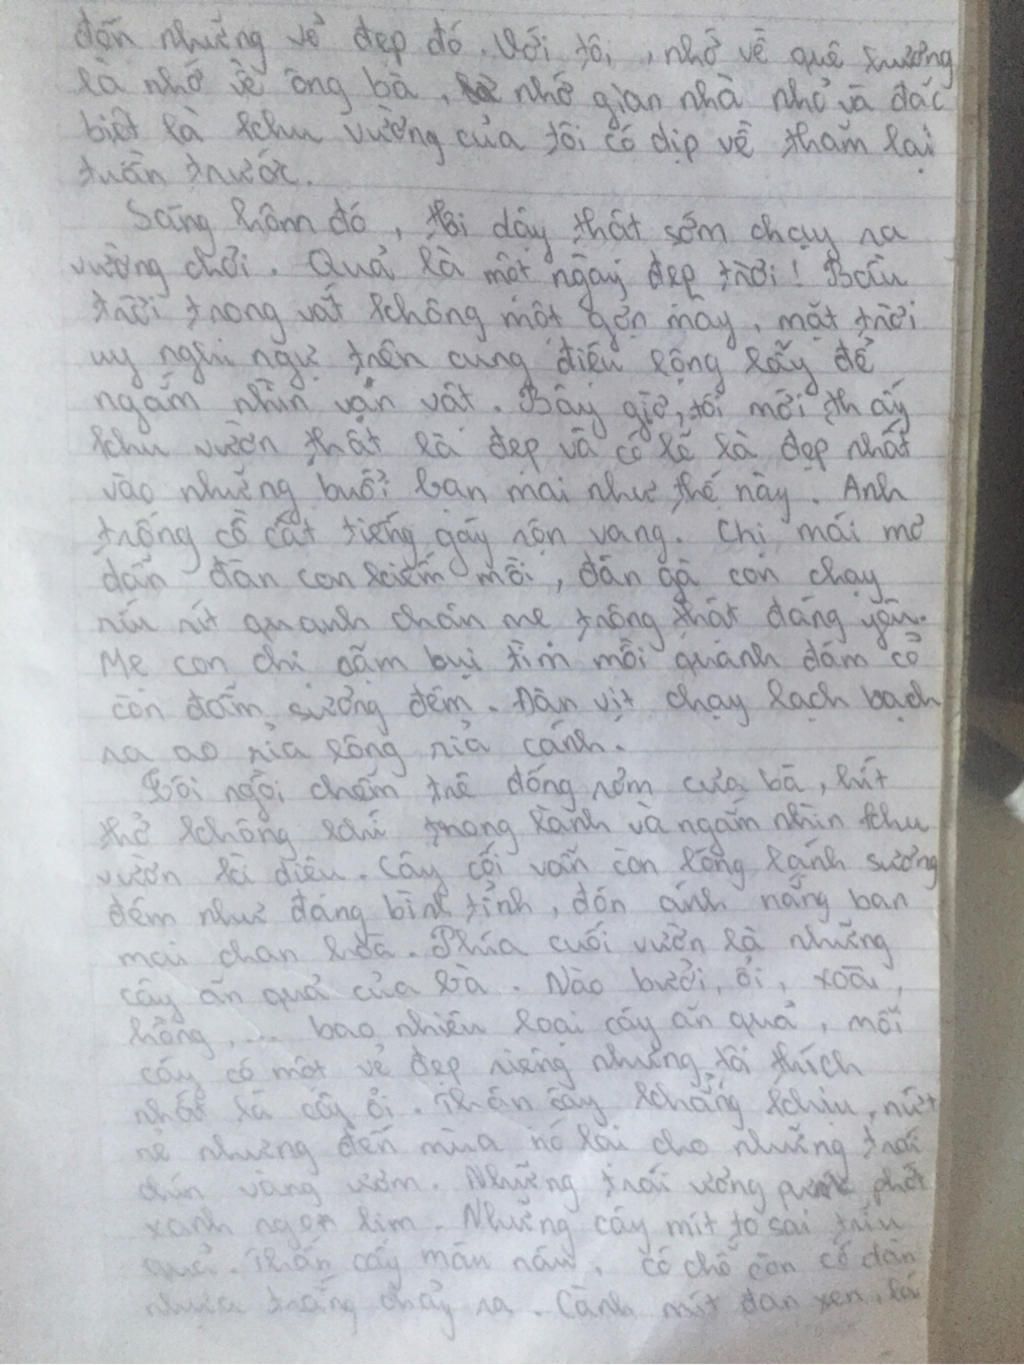 đến những vẻ đẹp đó. Với tôi, nhớ về quê hương
là nhớ về ông bà, nhớ gian nhà nhỏ và đặc
biệt là khu vường của tôi có dịp về thăm lại
tuần trước.
Sáng hôm đó, tôi dậy thật sớm chạy ra
vường chơi. Quả là một ngày đẹp trời! Bầu
trời trong vắt không một gợn mây, mặt trời
uy nghi ngự trên cung điệu lộng lẫy để
ngắm nhìn vạn vật. Bây giờ, tôi mới thấy
khu vườn thật là đẹp và có lẽ là đẹp nhất
vào những buổi ban mai như thế này. Anh
trống cồ cất tiếng gáy rộn vang. Chị mái mơ
dẫn đàn con kiếm mồi, đàn gà con chạy
ríu rít quanh chân mẹ trông thật đáng yêu.
Mẹ con chị cặm bụi tìm mồi quanh đám cỏ
còn đẫm sương đêm. Đàn vịt chạy lạch bạch
ra ao rỉa lông rỉa cánh.
Tôi ngồi chễm trệ đống rơm của bà, hít
thở không khí trong lành và ngắm nhìn khu
vườn kì diệu. Cây cối vẫn còn lóng lánh sương
đêm như đang bình tỉnh, đón ánh nắng ban
mai chan hoà. Phía cuối vườn là những
cây ăn quả của bà. Nào bưởi, ổi, xoài,
hồng, .... bao nhiêu loại cây ăn quả, mỗi
cây có một vẻ đẹp riêng nhưng tôi thích
nhất là cây ổi. Thân cây khẳng khiu, nứt
nẻ nhưng đến mùa nó lại cho những trái
chín vàng ươm. Những trái ương phớt
xanh ngọn lim. Những cây mít to sai trĩu
quả. Thân cây màu nâu, có chỗ còn có đàn
nhựa trắng chảy ra. Cành mít đan xen, lá